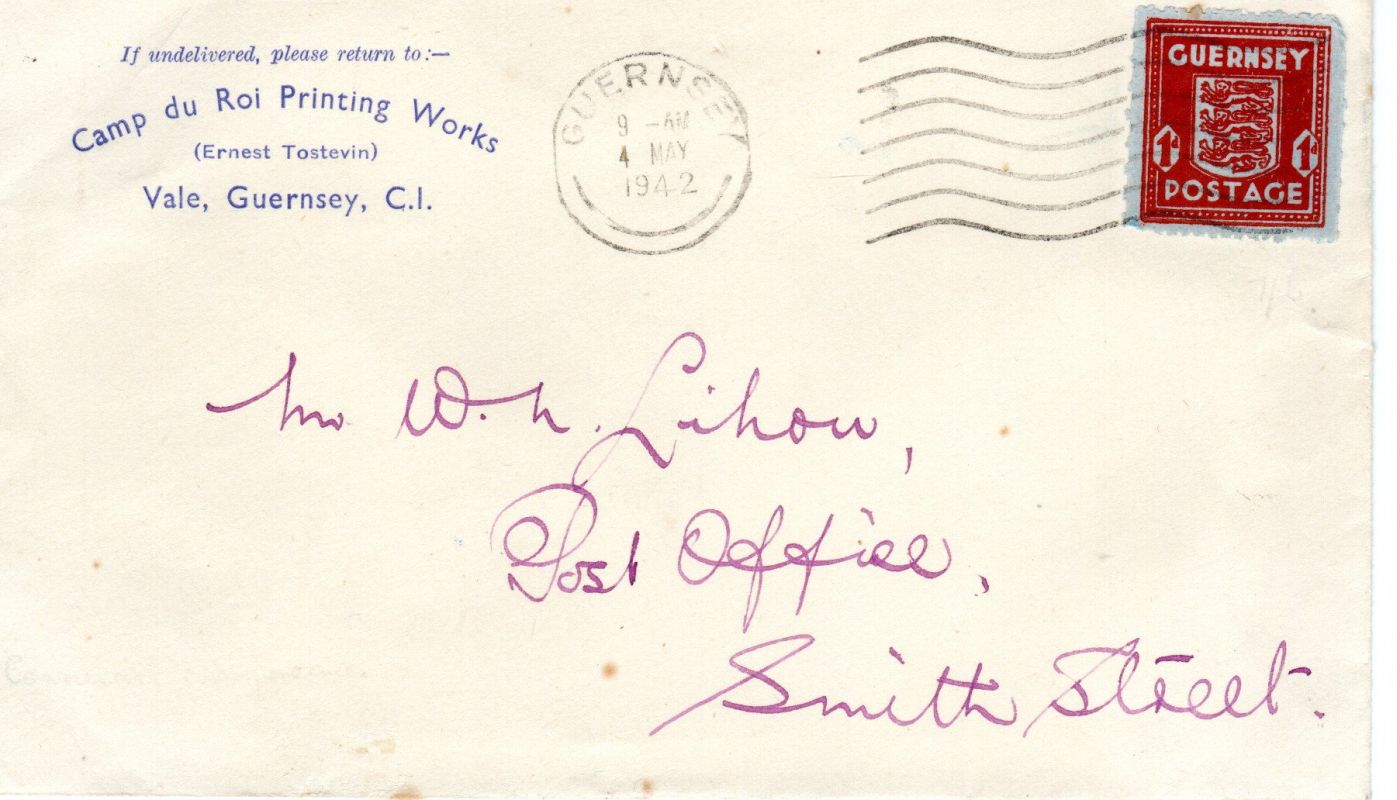 If undelivered, please return to:—
Camp du Roi Printing Works
(Ernest Tostevin)
Vale, Guernsey, C.I.
GUERNSEY
9 - AM
4 MAY
1942
GUERNSEY
1D 1D
POSTAGE
Mr W. N. Lihou,
Post Office,
Smith Street.